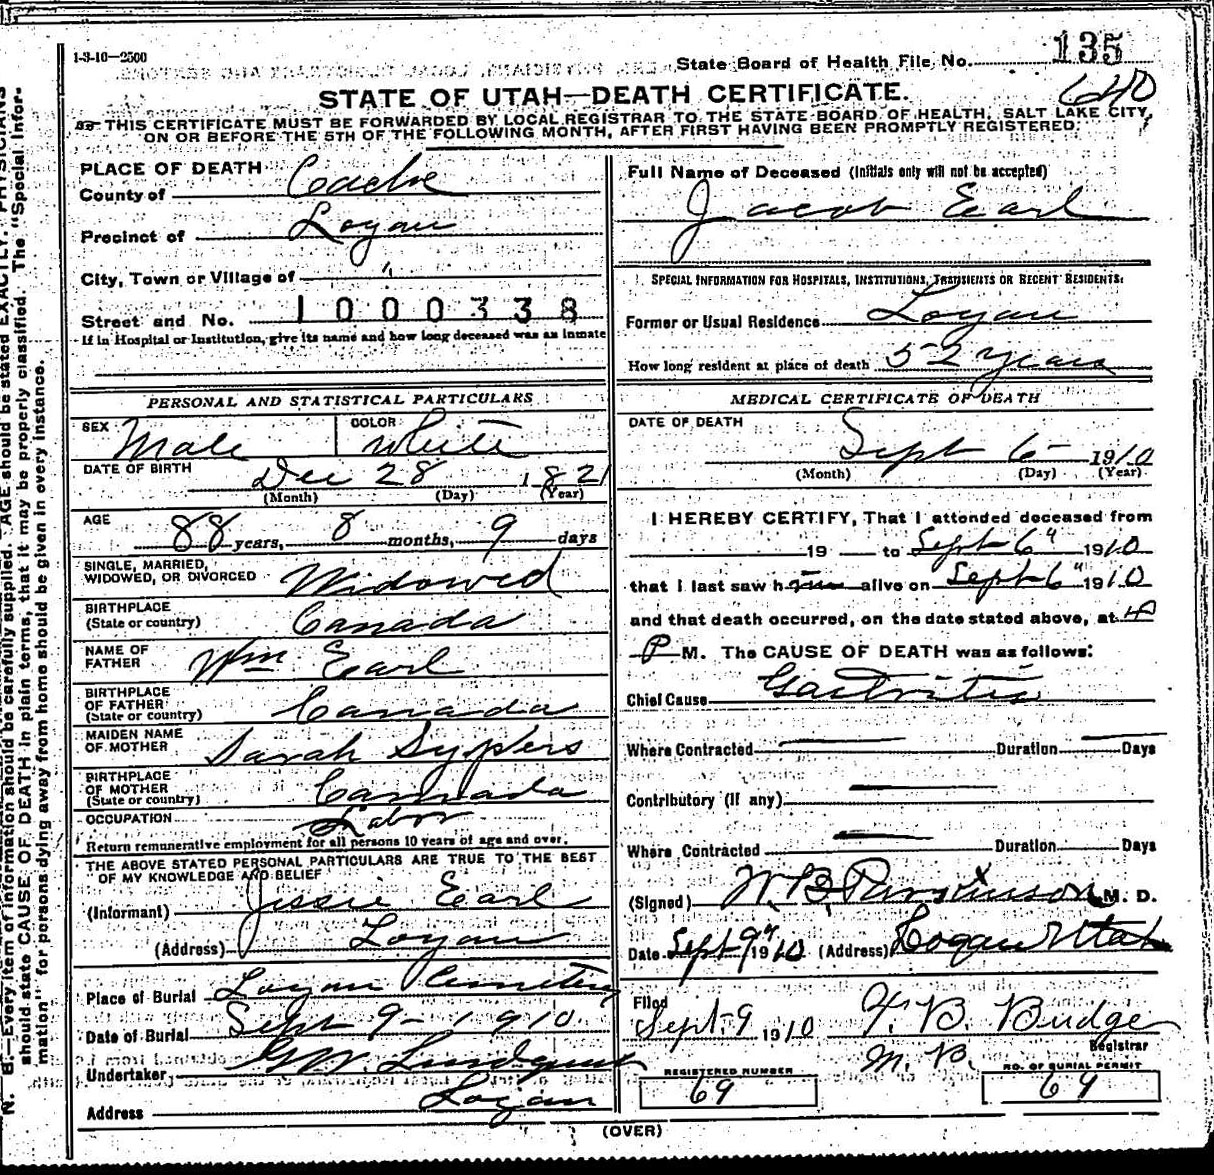 1-3-10—2500
State Board of Health File No. 135
640
STATE OF UTAH—DEATH CERTIFICATE.
THIS CERTIFICATE MUST BE FORWARDED BY LOCAL REGISTRAR TO THE STATE BOARD OF HEALTH, SALT LAKE CITY,
ON OR BEFORE THE 5TH OF THE FOLLOWING MONTH, AFTER FIRST HAVING BEEN PROMPTLY REGISTERED.
PLACE OF DEATH
County of Cache
Precinct of Logan
City, Town or Village of "
Street and No. 1000338
If in Hospital or Institution, give its name and how long deceased was an inmate
Full Name of Deceased (Initials only will not be accepted)
Jacob Earl
SPECIAL INFORMATION FOR HOSPITALS, INSTITUTIONS, TRANSIENTS OR RECENT RESIDENTS:
Former or Usual Residence Logan
How long resident at place of death 52 years
PERSONAL AND STATISTICAL PARTICULARS
SEX Male COLOR White
DATE OF BIRTH Dec 28 1821
(Month) (Day) (Year)
AGE 88 years, 8 months, 9 days
SINGLE, MARRIED,
WIDOWED, OR DIVORCED Widowed
BIRTHPLACE
(State or country) Canada
NAME OF
FATHER Wm Earl
BIRTHPLACE
OF FATHER
(State or country) Canada
MAIDEN NAME
OF MOTHER Sarah Sypers
BIRTHPLACE
OF MOTHER
(State or country) Cannada
OCCUPATION Labor
Return remunerative employment for all persons 10 years of age and over.
THE ABOVE STATED PERSONAL PARTICULARS ARE TRUE TO THE BEST
OF MY KNOWLEDGE AND BELIEF
(Informant) Jessie Earl
(Address) Logan
Place of Burial Logan Cemetery
Date of Burial Sept 9- 1910
Undertaker Lundquist
Address Logan
MEDICAL CERTIFICATE OF DEATH
DATE OF DEATH
Sept 6- 1910
(Month) (Day) (Year)
I HEREBY CERTIFY, That I attended deceased from
19 to Sept 6" 1910
that I last saw him alive on Sept 6" 1910
and that death occurred, on the date stated above, at 4
P M. The CAUSE OF DEATH was as follows:
Chief Cause Gastritis
Where Contracted Duration Days
Contributory (if any)
Where Contracted Duration Days
(Signed) W. B. Parkinson M. D.
Date Sept 9" 1910 (Address) Logan Utah
Filed
Sept. 9 1910 B. Budge
Registrar
REGISTERED NUMBER
69
NO. OF BURIAL PERMIT
69
(OVER)
N. B.—Every item of information should be carefully supplied. AGE should be stated EXACTLY. PHYSICIANS
should state CAUSE OF DEATH in plain terms, that it may be properly classified. The "Special Infor-
mation" for persons dying away from home should be given in every instance.